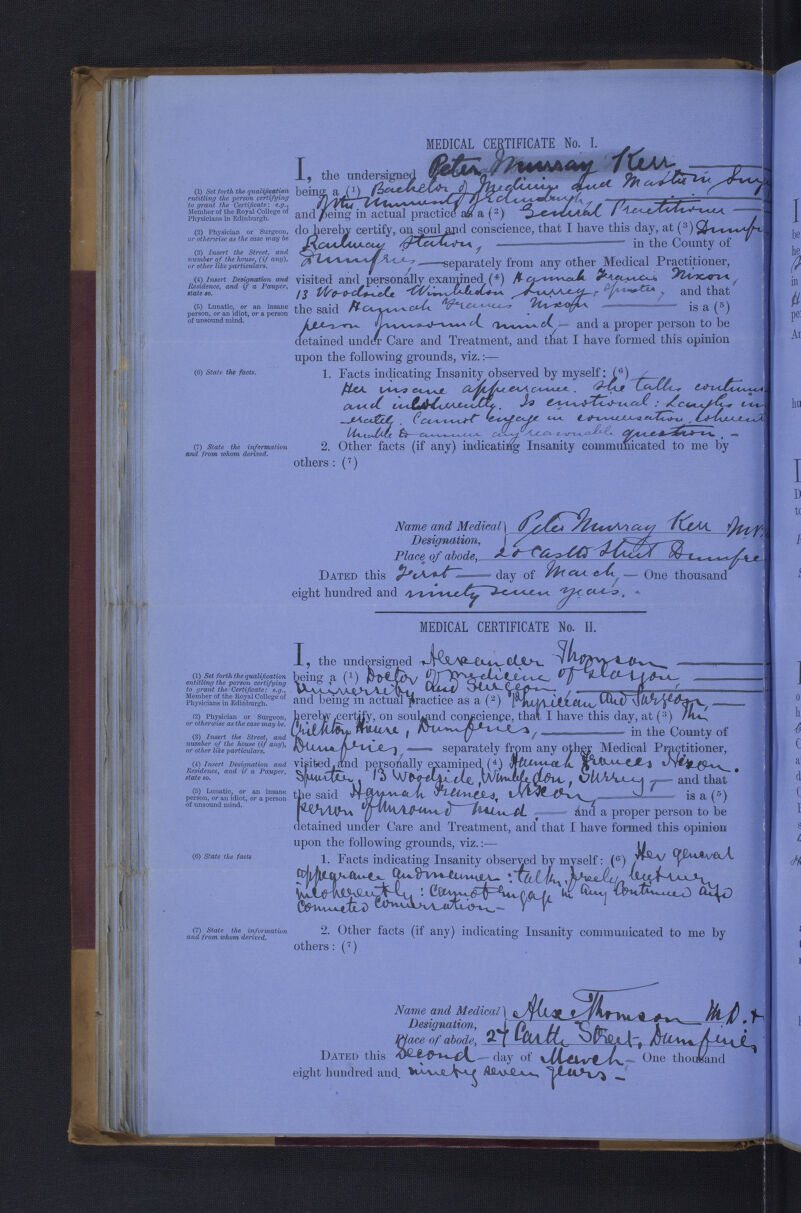 MEDICAL CERTIFICATE No. I.
I, the undersigned Peter Murray Kerr
(1) Set forth the qualification
entitling the person certifying
to grant the Certificate: e.g.,
Member of the Royal College of
Physicians in Edinburgh.
being a (1) Bachelor of Medicine and Master in
of the University of Edinburgh,
and being in actual practice as a (2) General Practitioner
(2) Physician or Surgeon,
or otherwise as the case may be
do hereby certify, on soul and conscience, that I have this day, at (3)
Railway Station, in the County of
(3) Insert the Street, and
number of the house, (if any),
or other like particulars.
Dumfries separately from any other Medical Practitioner,
(4) Insert Designation and
Residence, and if a Pauper,
state so.
visited and personally examined (4) Hannah Frances Nixon,
13 Woodside Wimbledon Surrey, Spinster, and that
(5) Lunatic, or an insane
person, or an idiot, or a person
of unsound mind.
the said Hannah Frances Nixon is a (5)
person of unsound mind, and a proper person to be
detained under Care and Treatment, and that I have formed this opinion
upon the following grounds, viz.:—
(6) State the facts.
1. Facts indicating Insanity observed by myself: (6)
Her insane appearance. She talks
and incoherently. Is emotional: Laughs
Cannot engage in conversation.
Unable to answer any reasonable question. -
(7) State the information
and from whom derived.
2. Other facts (if any) indicating Insanity communicated to me by
others: (7)
Name and Medical Designation, Peter Murray Kerr
Place of abode, 20 Castle Street
DATED this First day of March, — One thousand
eight hundred and ninety seven years. -
MEDICAL CERTIFICATE No. II.
I, the undersigned Alexander Thomson
(1) Set forth the qualification
entitling the person certifying
to grant the Certificate: e.g.,
Member of the Royal College of
Physicians in Edinburgh.
being a (1) Doctor of Medicine of Glasgow
University and Surgeon
and being in actual practice as a (2) Physician and Surgeon,
(2) Physician or Surgeon,
or otherwise as the case may be.
hereby certify, on soul and conscience, that I have this day, at (3) The
Crichton House, Dumfries, in the County of
(3) Insert the Street, and
number of the house (if any),
or other like particulars.
Dumfries, — separately from any other Medical Practitioner,
(4) Insert Designation and
Residence, and if a Pauper,
state so.
visited and personally examined (4) Hannah Frances Nixon.
Spinster, 13 Woodside, Wimbledon, Surrey — and that
(5) Lunatic, or an insane
person, or an idiot, or a person
of unsound mind.
the said Hannah Frances, Nixon is a (5)
person of unsound mind — and a proper person to be
detained under Care and Treatment, and that I have formed this opinion
upon the following grounds, viz.:—
(6) State the facts
1. Facts indicating Insanity observed by myself: (6) Her general
appearance and manner: talks freely,
incoherently: Cannot engage in any continued and
connected conversation -
(7) State the information
and from whom derived.
2. Other facts (if any) indicating Insanity communicated to me by
others: (7)
Name and Medical Designation, Alex Thomson M.D. +
Place of abode, 27 Castle Street, Dumfries
DATED this Second — day of March — One thousand
eight hundred and ninety seven years —